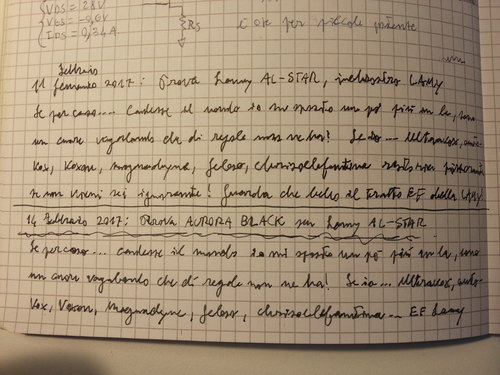 VDS = 28V
VGS = -0,6V
IDS = 0,34A
RS
è ok per piccole potenze
febbraio
11 gennaio 2017: Prova Lamy AL-STAR, inchiostro LAMY
Se per caso... cadesse il mondo io mi sposto un po' più in là, sono
un cuore vagabondo che di regole non ne ha! Se io... Ultravox,
Vox, Voxson, magnadyne, Geloso, chrisoelefantina
se non vieni sei ignorante! Guarda che bello il tratto EF della LAMY
14 febbraio 2017: PROVA AURORA BLACK su Lamy AL-STAR
Se per caso... cadesse il mondo io mi sposto un po' più in là, sono
un cuore vagabondo che di regole non ne ha! Se io... Ultravox,
Vox, Voxson, Magnadyne, Geloso, chrisoelefantina... EF Lamy